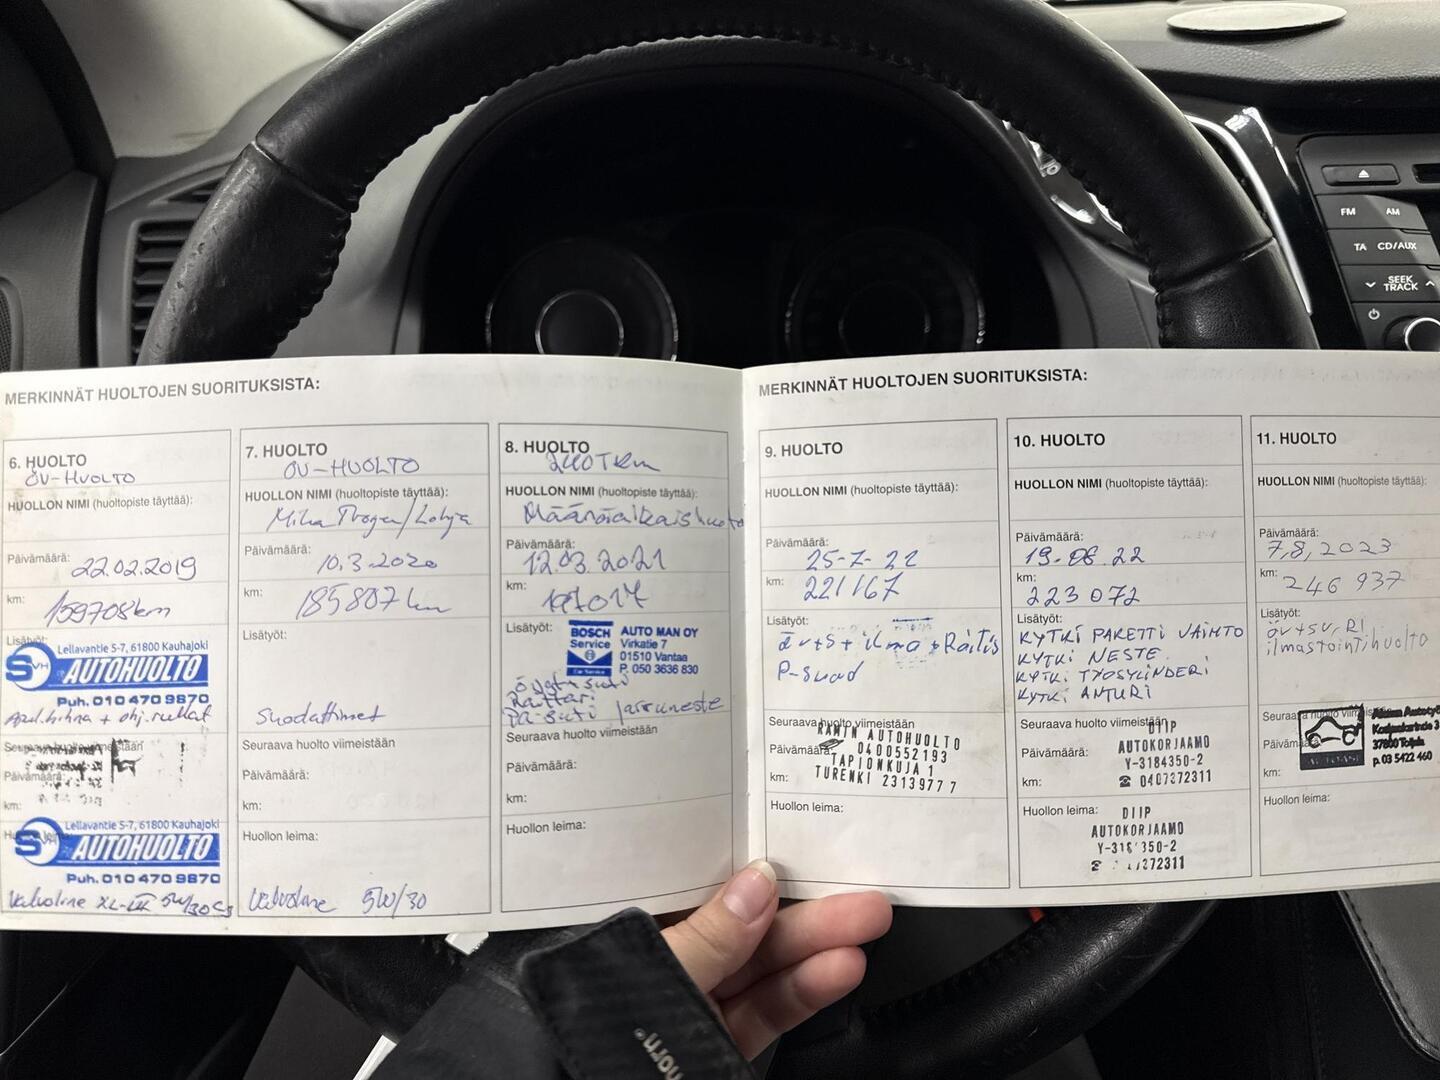 MERKINNÄT HUOLTOJEN SUORITUKSISTA:
6. HUOLTO
ÖV-HUOLTO
HUOLLON NIMI (huoltopiste täyttää):
Päivämäärä:
22.02.2019
km:
159708km
Lisätyöt:
Lellavantie 5-7, 61800 Kauhajoki
AUTOHUOLTO
Puh. 010 470 9870
Apul.hihna + ohj.rullat
Seuraava huolto viimeistään
Päivämäärä:
km:
Lellavantie 5-7, 61800 Kauhajoki
AUTOHUOLTO
Puh. 010 470 9870
Valvoline XL-III 5W/30
7. HUOLTO
ÖV-HUOLTO
HUOLLON NIMI (huoltopiste täyttää):
Päivämäärä:
10.3.2020
km:
185807 km
Lisätyöt:
Suodattimet
Seuraava huolto viimeistään
Päivämäärä:
km:
Huollon leima:
Valvoline 5W/30
8. HUOLTO
240 Tkm
HUOLLON NIMI (huoltopiste täyttää):
Määräaikaishuolto
Päivämäärä:
12.03.2021
km:
Lisätyöt:
BOSCH
Service
Car Service
AUTO MAN OY
Virkatie 7
01510 Vantaa
P. 050 3636 830
Raitisi
jarruneste
Seuraava huolto viimeistään
Päivämäärä:
km:
Huollon leima:
MERKINNÄT HUOLTOJEN SUORITUKSISTA:
9. HUOLTO
HUOLLON NIMI (huoltopiste täyttää):
Päivämäärä:
25-7-22
km:
221167
Lisätyöt:
öv+s + ilma + Raitis
P-suod
Seuraava huolto viimeistään
Päivämäärä:
km:
RAMIN AUTOHUOLTO
0400552193
TAPIONKUJA 1
TURENKI 2313977 7
Huollon leima:
10. HUOLTO
HUOLLON NIMI (huoltopiste täyttää):
Päivämäärä:
km:
223 072
Lisätyöt:
KYTKI PAKETTI VAIHTO
KYTKI NESTE
KYTKI TYÖSYLINDERI
KYTKI ANTURI
Seuraava huolto viimeistään
Päivämäärä:
km:
DIIP
AUTOKORJAAMO
Y-3184350-2
☎ 0407272311
Huollon leima:
DIIP
AUTOKORJAAMO
11. HUOLTO
HUOLLON NIMI (huoltopiste täyttää):
Päivämäärä:
7,8, 2023
km:
246 937
Lisätyöt:
öv+su, RI
ilmastointihuolto
Seuraava huolto
Päivämäärä:
km:
AUTOASI
37800 Toijala
p. 03 5422 460
Huollon leima:
FM
AM
TA
CD/AUX
SEEK
TRACK
horn